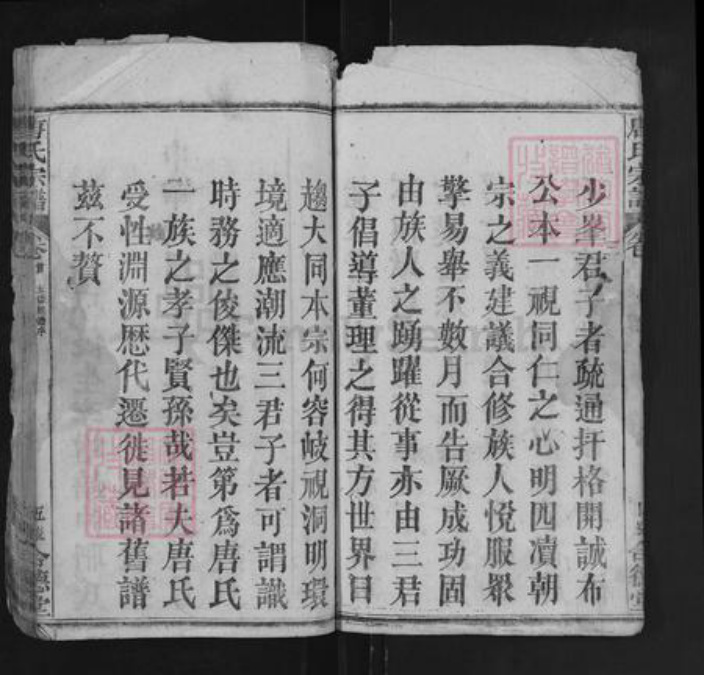 少峯君子者疏通扞格開誠布
公本一視同仁之心明四瀆朝
宗之義建議合修族人悅服眾
擎易舉不數月而告厥成功固
由族人之踴躍從事亦由三君
子倡導董理之得其方世界日
趨大同本宗何容歧視洞明環
境適應潮流三君子者可謂識
時務之俊傑也矣豈第爲唐氏
一族之孝子賢孫哉若夫唐氏
受性淵源歷代遷徙見諸舊譜
茲不贅
唐氏宗譜
卷
合德堂